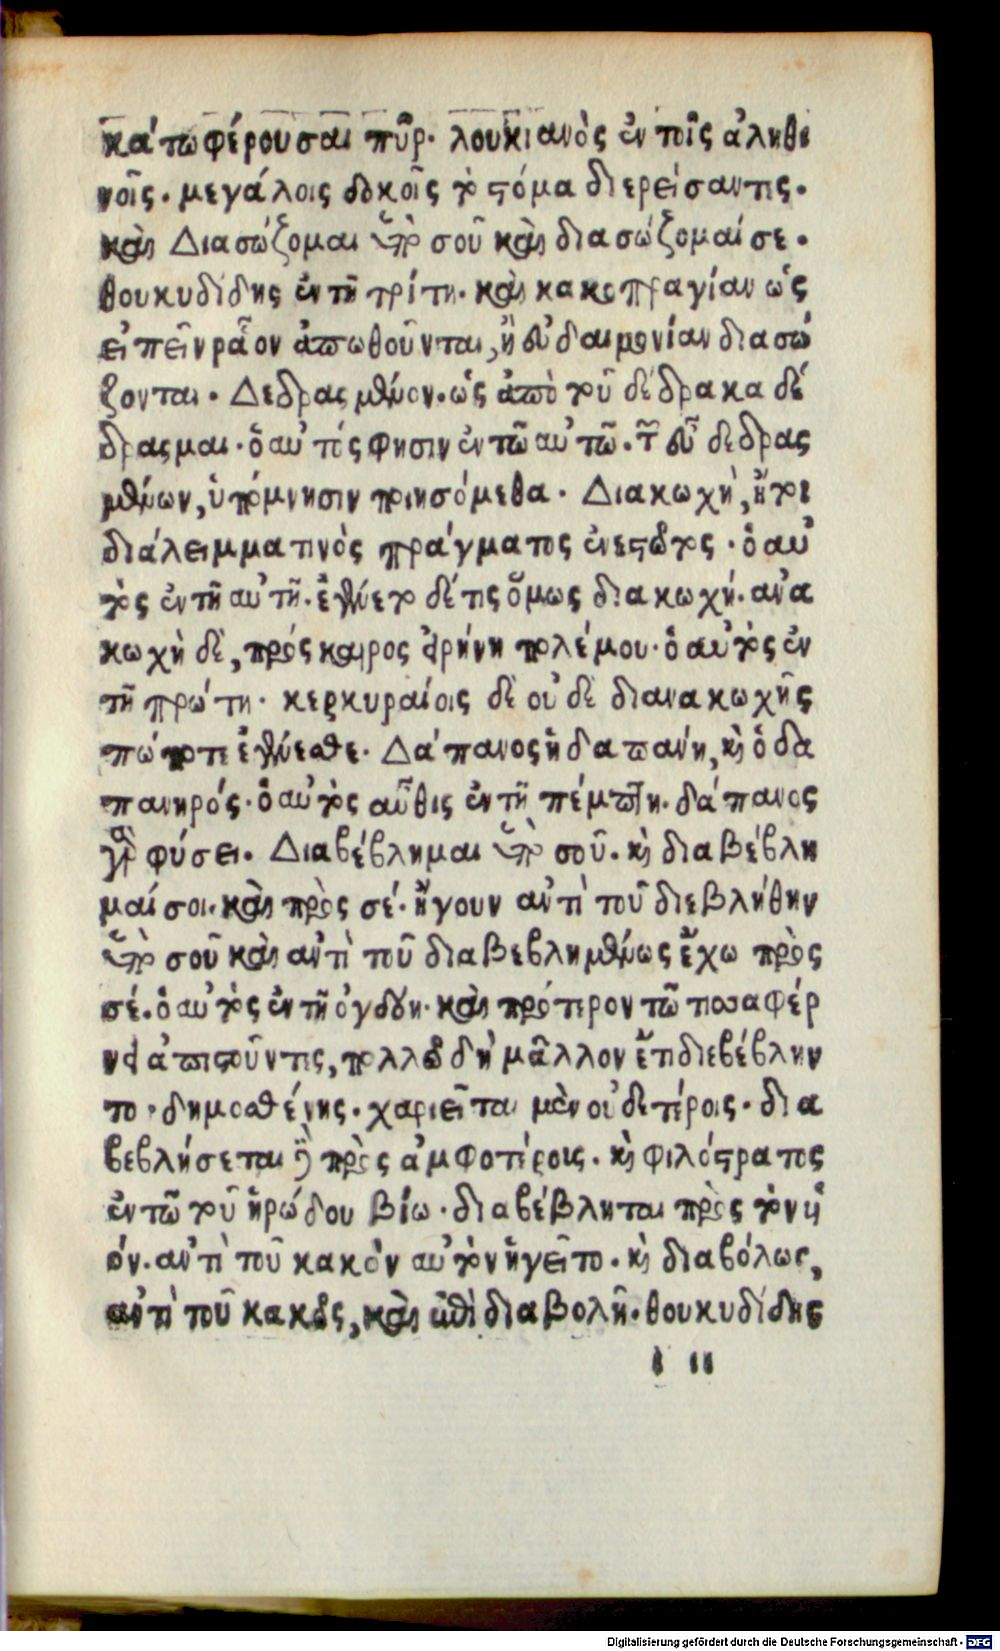 κάτω φέρουσαι πῦρ. λουκιανὸς ἐν τοῖς ἀληθι
νοῖς. μεγάλοις δοκοῖς τὸ στόμα διερείσαντες.
καὶ Διασώζομαι ὑπὲρ σοῦ καὶ διασώζομαί σε.
θουκυδίδης ἐν τῇ τρίτῃ. καὶ κακοπραγίαν ὡς
εἰπεῖν ρᾷον ἀπωθοῦνται, ἢ εὐδαιμονίαν διασώ
ζονται. Δεδρασμένον. ὡς ἀπὸ τοῦ δέδρακα δέ
δρασμαι. ὁ αὐτός φησιν ἐν τῷ αὐτῷ. τῶν εὖ δεδρασ
μένων, ὑπόμνησιν ποιησόμεθα. Διακωχὴ, ἤτοι
διάλειμμα τινὸς πράγματος ἐνεστῶτος. ὁ αὐ
τὸς ἐν τῇ αὐτῇ. ἐγένετο δέ τις ὅμως διακωχή. ἀνα
κωχὴ δὲ, πρόσκαιρος εἰρήνη πολέμου. ὁ αὐτὸς ἐν
τῇ πρώτῃ. κερκυραίοις δὲ οὐδὲ διανακωχῆς
πώποτε ἐγένεσθε. Δάπανος ἡ δαπάνη, καὶ ὁ δα
πανηρός. ὁ αὐτὸς αὖθις ἐν τῇ πέμπτῃ. δάπανος
γὰρ φύσει. Διαβέβλημαι ὑπὲρ σοῦ. καὶ διαβέβλη
μαί σοι. καὶ πρὸς σέ. ἤγουν ἀντὶ τοῦ διεβλήθην
ὑπὲρ σοῦ καὶ ἀντὶ τοῦ διαβεβλημένως ἔχω πρὸς
σέ. ὁ αὐτὸς ἐν τῇ ὀγδόῃ. καὶ πρότερον τῷ τισσαφέρ
νει ἀπιστοῦντες, πολλῷ δὴ μᾶλλον ἔτι διεβέβλην
το. δημοσθένης. χαριεῖται μὲν οὐδετέροις. δια
βεβλήσεται δὲ πρὸς ἀμφοτέροις. καὶ φιλόστρατος
ἐν τῷ τοῦ ἡρώδου βίω. διαβέβληται πρὸς τὸν υἱ
όν. ἀντὶ τοῦ κακὸν αὐτὸν ἡγεῖτο. καὶ διαβόλως,
ἀντὶ τοῦ κακῶς, καὶ ἐπὶ διαβολῇ. θουκυδίδης
ι ιι
Digitalisierung gefördert durch die Deutsche Forschungsgemeinschaft - DFG